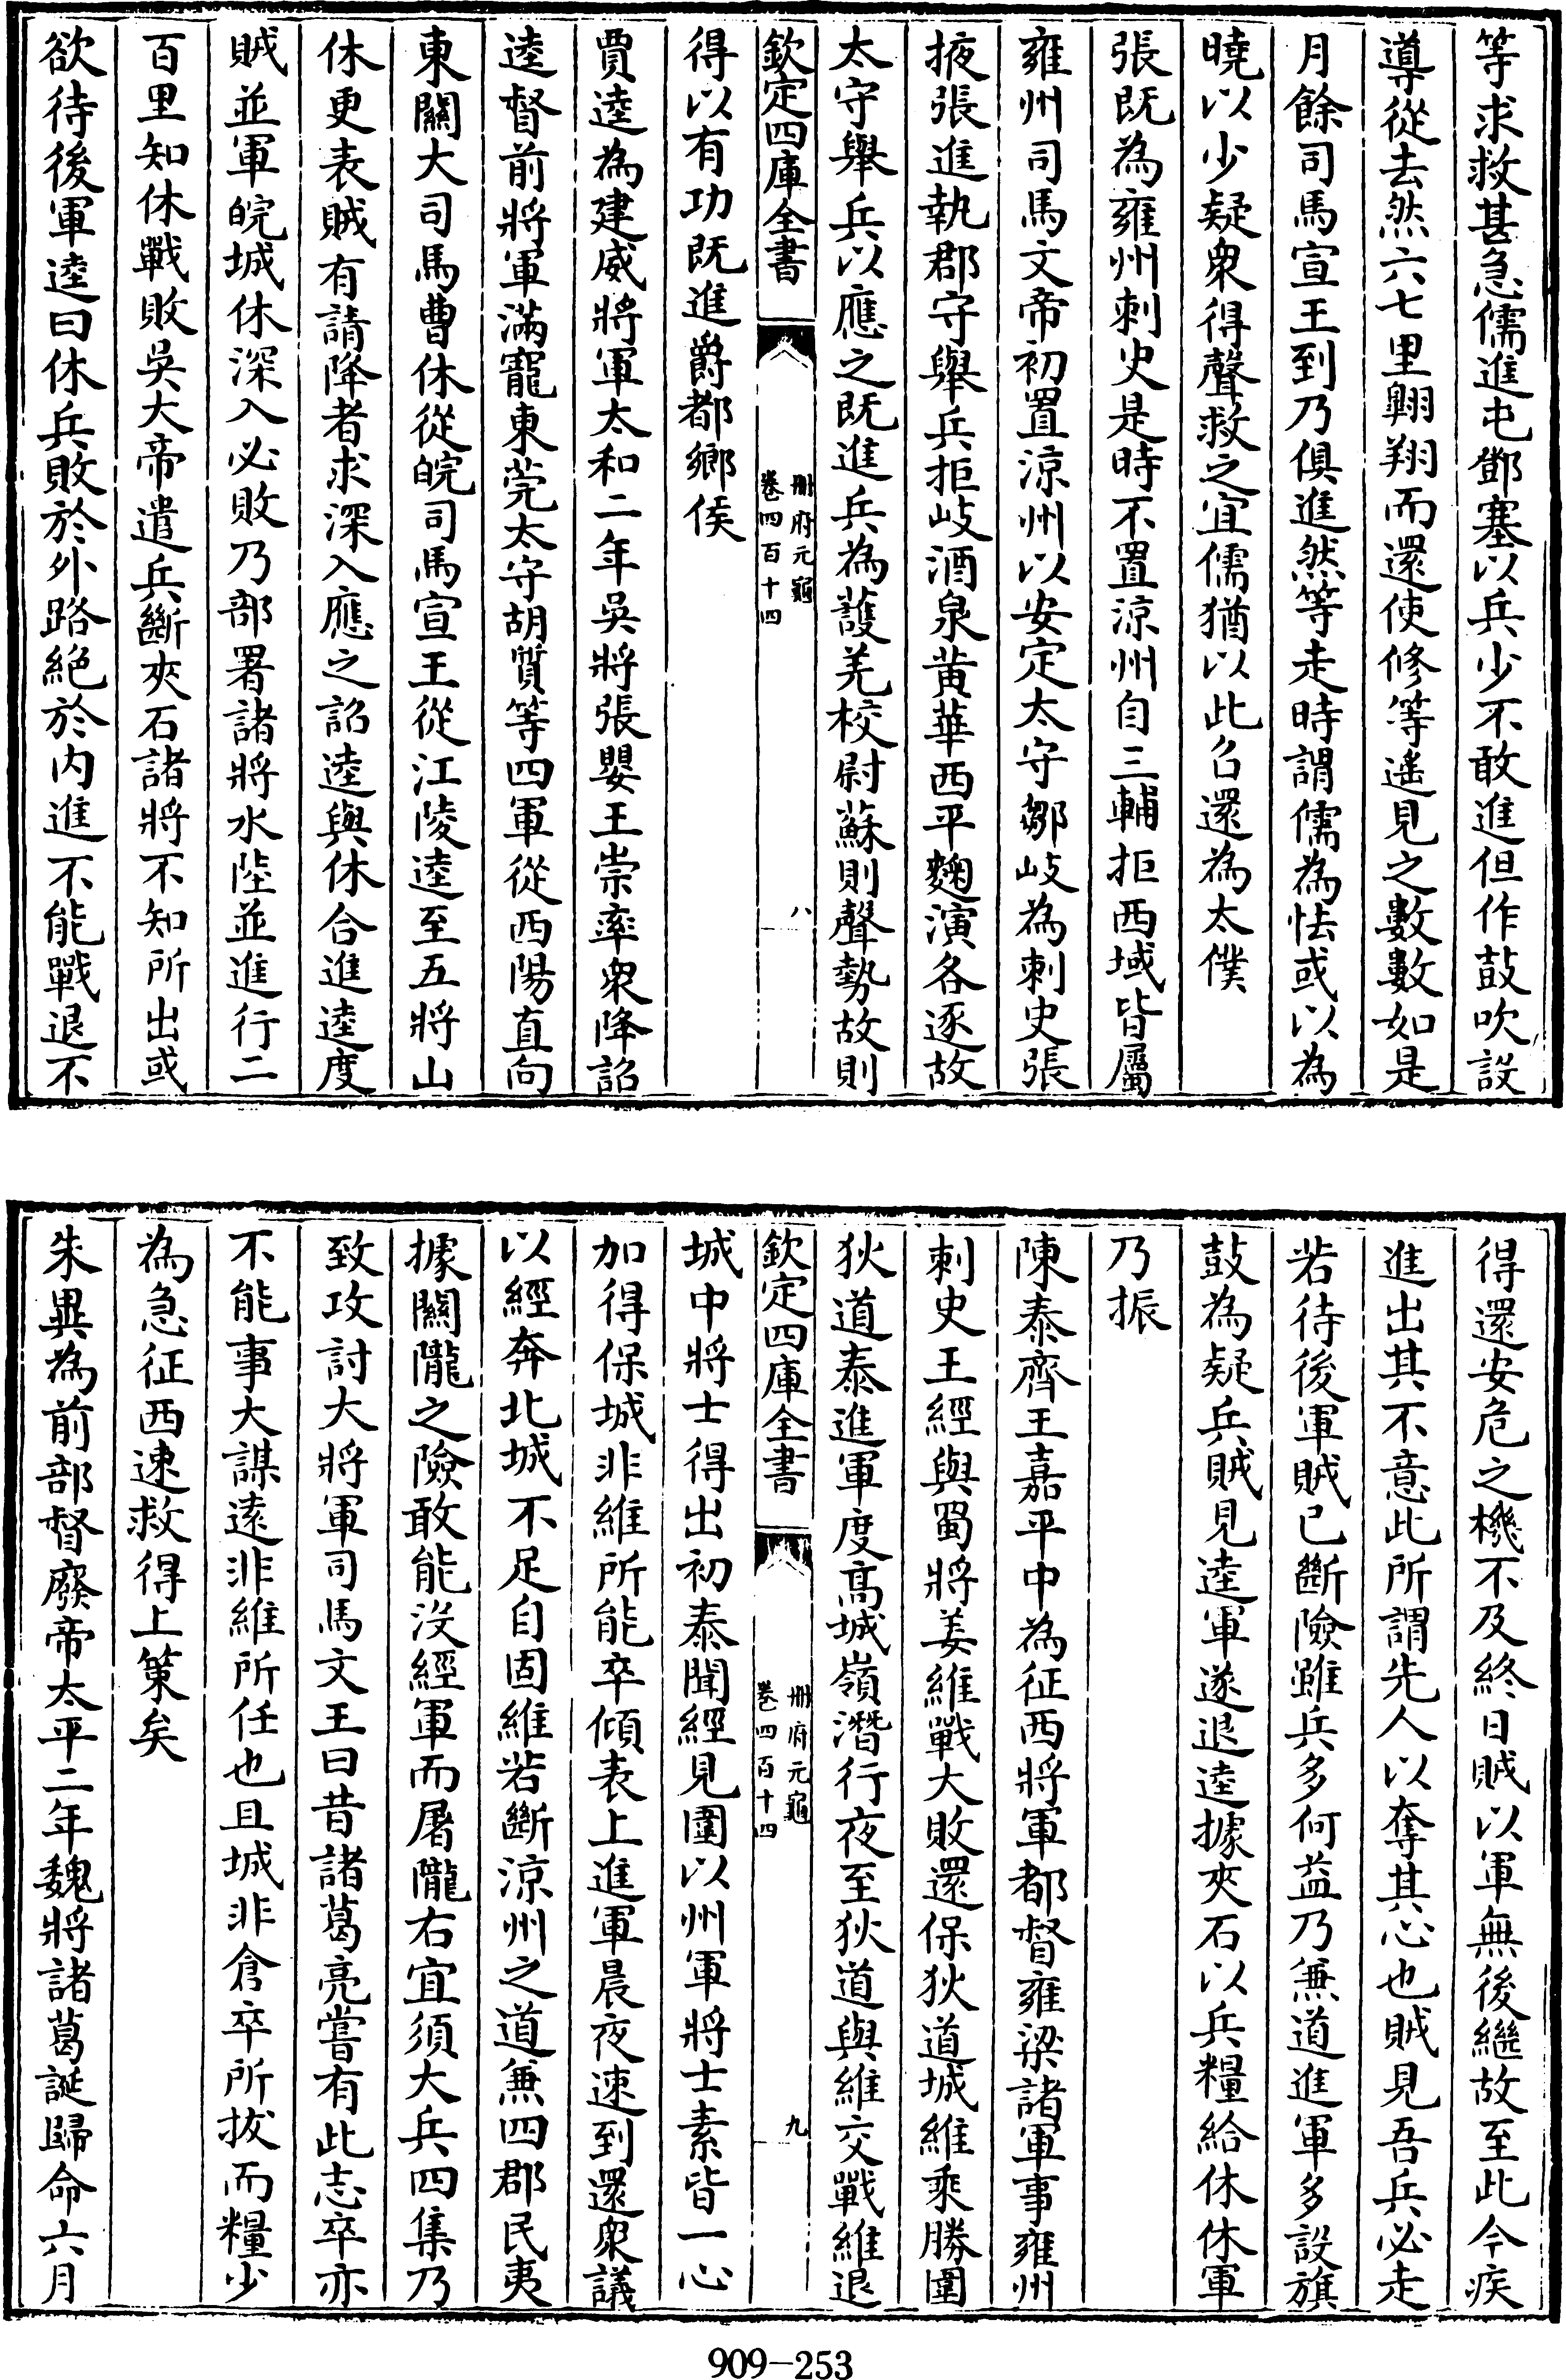 等求救甚急儒進屯鄧塞以兵少不敢進但作鼓吹設
導從去然六七里翺翔而還使修等遙見之數數如是
月餘司馬宣王到乃俱進然等走時謂儒為怯或以為
曉以少疑衆得聲救之宜儒猶以此召還為太僕
張既為雍州刺史是時不置涼州自三輔拒西域皆屬
雍州司馬文帝初置涼州以安定太守鄒岐為刺史張
掖張進執郡守舉兵拒岐酒泉黃華西平麴演各逐故
太守舉兵以應之既進兵為護羌校尉蘇則聲勢故則
欽定四庫全書
冊府元龜
卷四百十四
八
得以有功既進爵都鄉侯
賈逵為建威將軍太和二年吳將張嬰王崇率衆降詔
逵督前將軍滿寵東莞太守胡質等四軍從西陽直向
東關大司馬曹休從皖司馬宣王從江陵逵至五將山
休更表賊有請降者求深入應之詔逵與休合進逵度
賊並軍皖城休深入必敗乃部署諸將水陸並進行二
百里知休戰敗吳大帝遣兵斷夾石諸將不知所出或
欲待後軍逵曰休兵敗於外路絕於内進不能戰退不
得還安危之機不及終日賊以軍無後繼故至此今疾
進出其不意此所謂先人以奪其心也賊見吾兵必走
若待後軍賊已斷險雖兵多何益乃兼道進軍多設旗
鼓為疑兵賊見逵軍遂退逵據夾石以兵糧給休休軍
乃振
陳泰齊王嘉平中為征西將軍都督雍梁諸軍事雍州
刺史王經與蜀將姜維戰大敗還保狄道城維乘勝圍
狄道泰進軍度高城嶺潛行夜至狄道與維交戰維退
欽定四庫全書
冊府元龜
卷四百十四
九
城中將士得出初泰聞經見圍以州軍將士素皆一心
加得保城非維所能卒傾表上進軍晨夜速到還衆議
以經奔北城不足自固維若斷涼州之道兼四郡民夷
據關隴之險敢能沒經軍而屠隴右宜須大兵四集乃
致攻討大將軍司馬文王曰昔諸葛亮嘗有此志卒亦
不能事大謀遠非維所任也且城非倉卒所拔而糧少
為急征西速救得上策矣
朱異為前部督廢帝太平二年魏將諸葛誕歸命六月
909-253